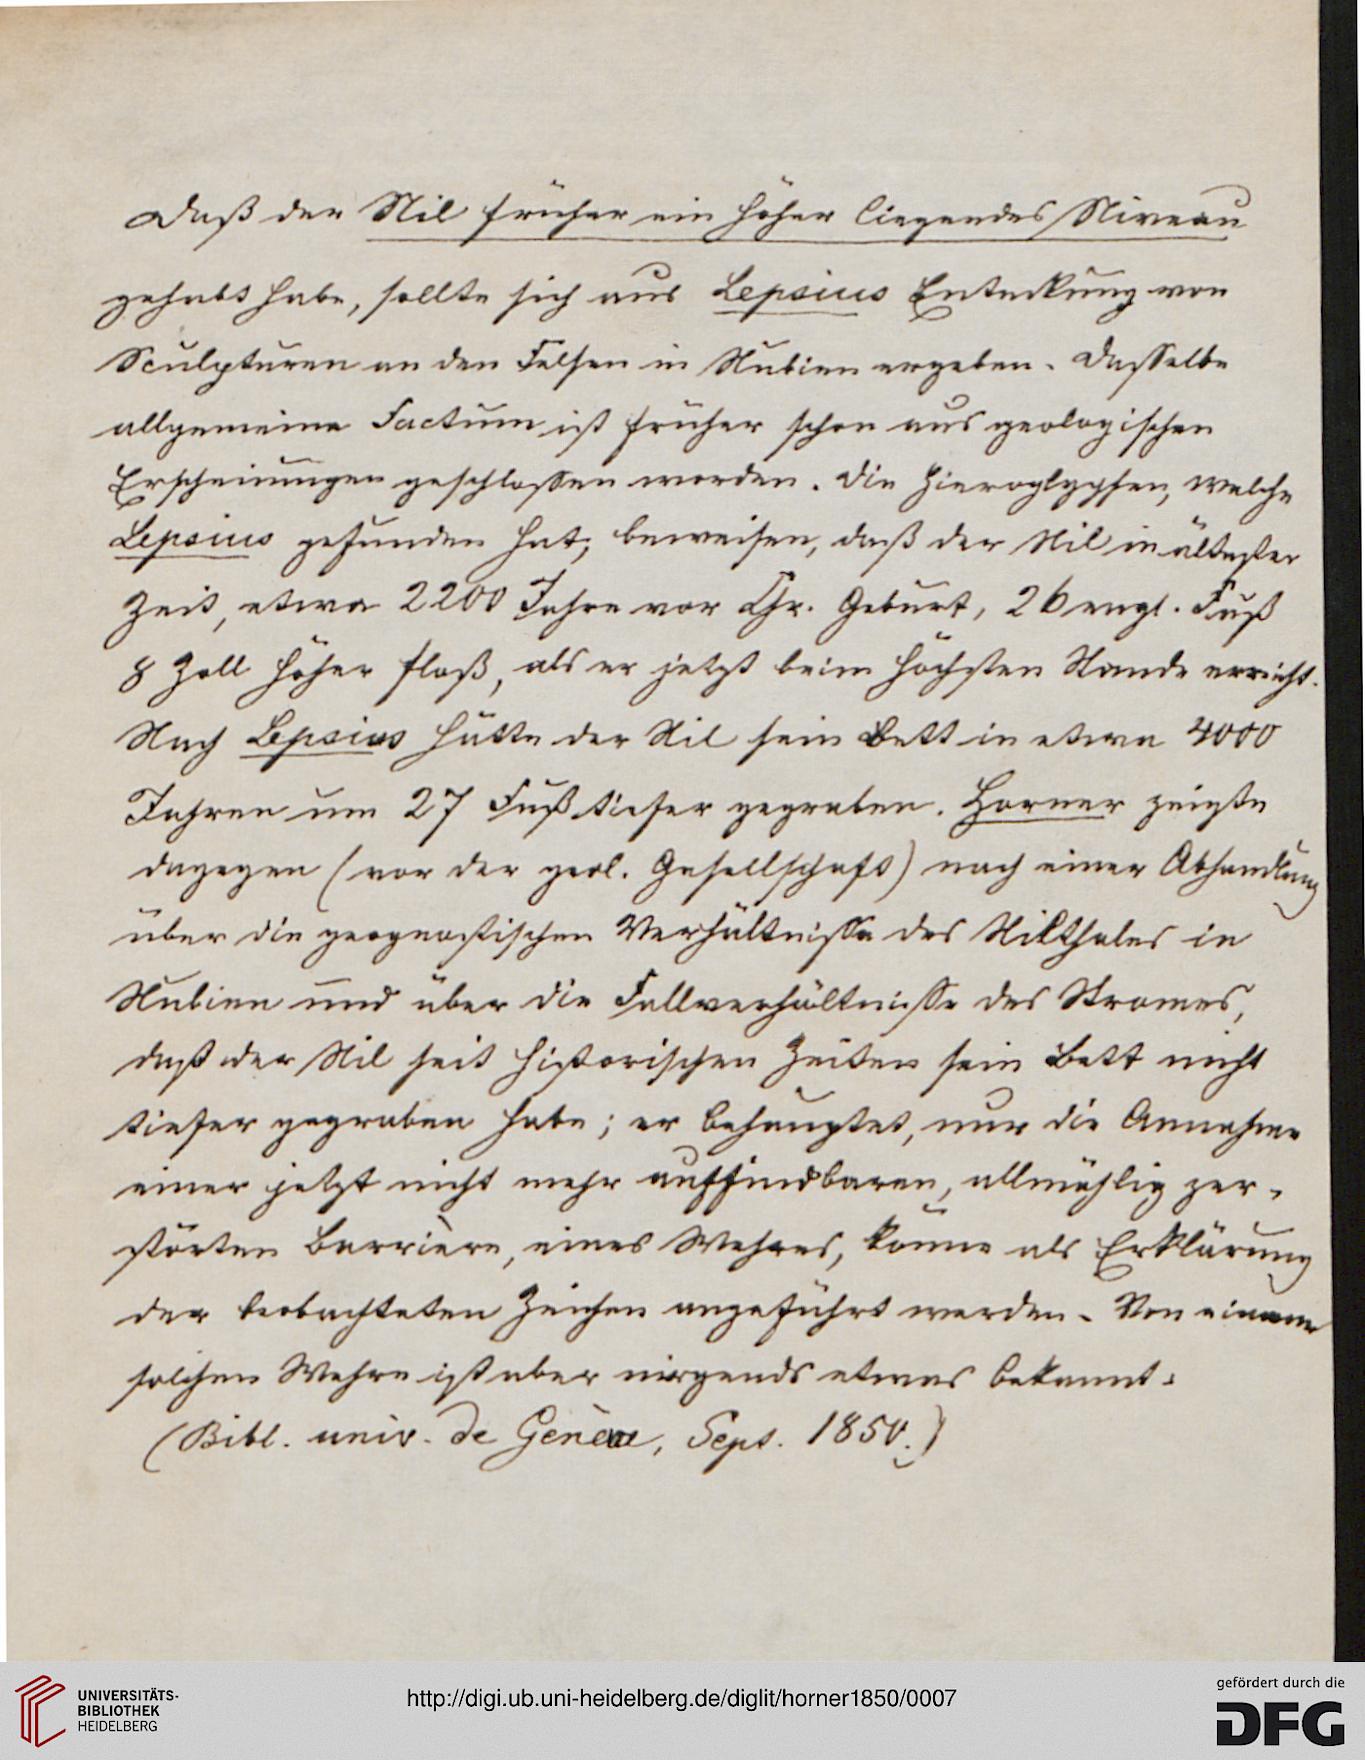 Daß der Nil früher ein höher liegendes Niveau
gehabt habe, sollte sich aus Lepsius Entdeckung von
Sculpturen an den Felsen in Nubien ergeben. Dasselbe
allgemeine Factum ist früher schon aus geologischen
Erscheinungen geschlossen worden. Die Hieroglyphen, welche
Lepsius gefunden hat, beweisen, daß der Nil in ältester
Zeit, etwa 2200 Jahre vor Chr. Geburt, 26 engl. Fuß
8 Zoll höher floß, als er jetzt beim höchsten Stande erreicht.
Nach Lepsius hätte der Nil sein Bett in etwa 4000
Jahren um 27 Fuß tiefer gegraben. Horner zeigte
dagegen (vor der geol. Gesellschaft) nach einer Abhandlung
über die geognostischen Verhältnisse des Nilthales in
Nubien und über die Fallverhältnisse des Stromes,
daß der Nil seit historischen Zeiten sein Bett nicht
tiefer gegraben habe; er behauptet, nur die Annahme
einer jetzt nicht mehr auffindbaren, allmählig zer-
störten Barrière, eines Wehres, könne als Erklärung
der beobachteten Zeichen angeführt werden. Von einem
solchen Wehre ist aber nirgends etwas bekannt.
(Bibl. univ. de Genève, Sept. 1850.)
UNIVERSITÄTS-
BIBLIOTHEK
HEIDELBERG
http://digi.ub.uni-heidelberg.de/diglit/horner1850/0007
gefördert durch die
DFG